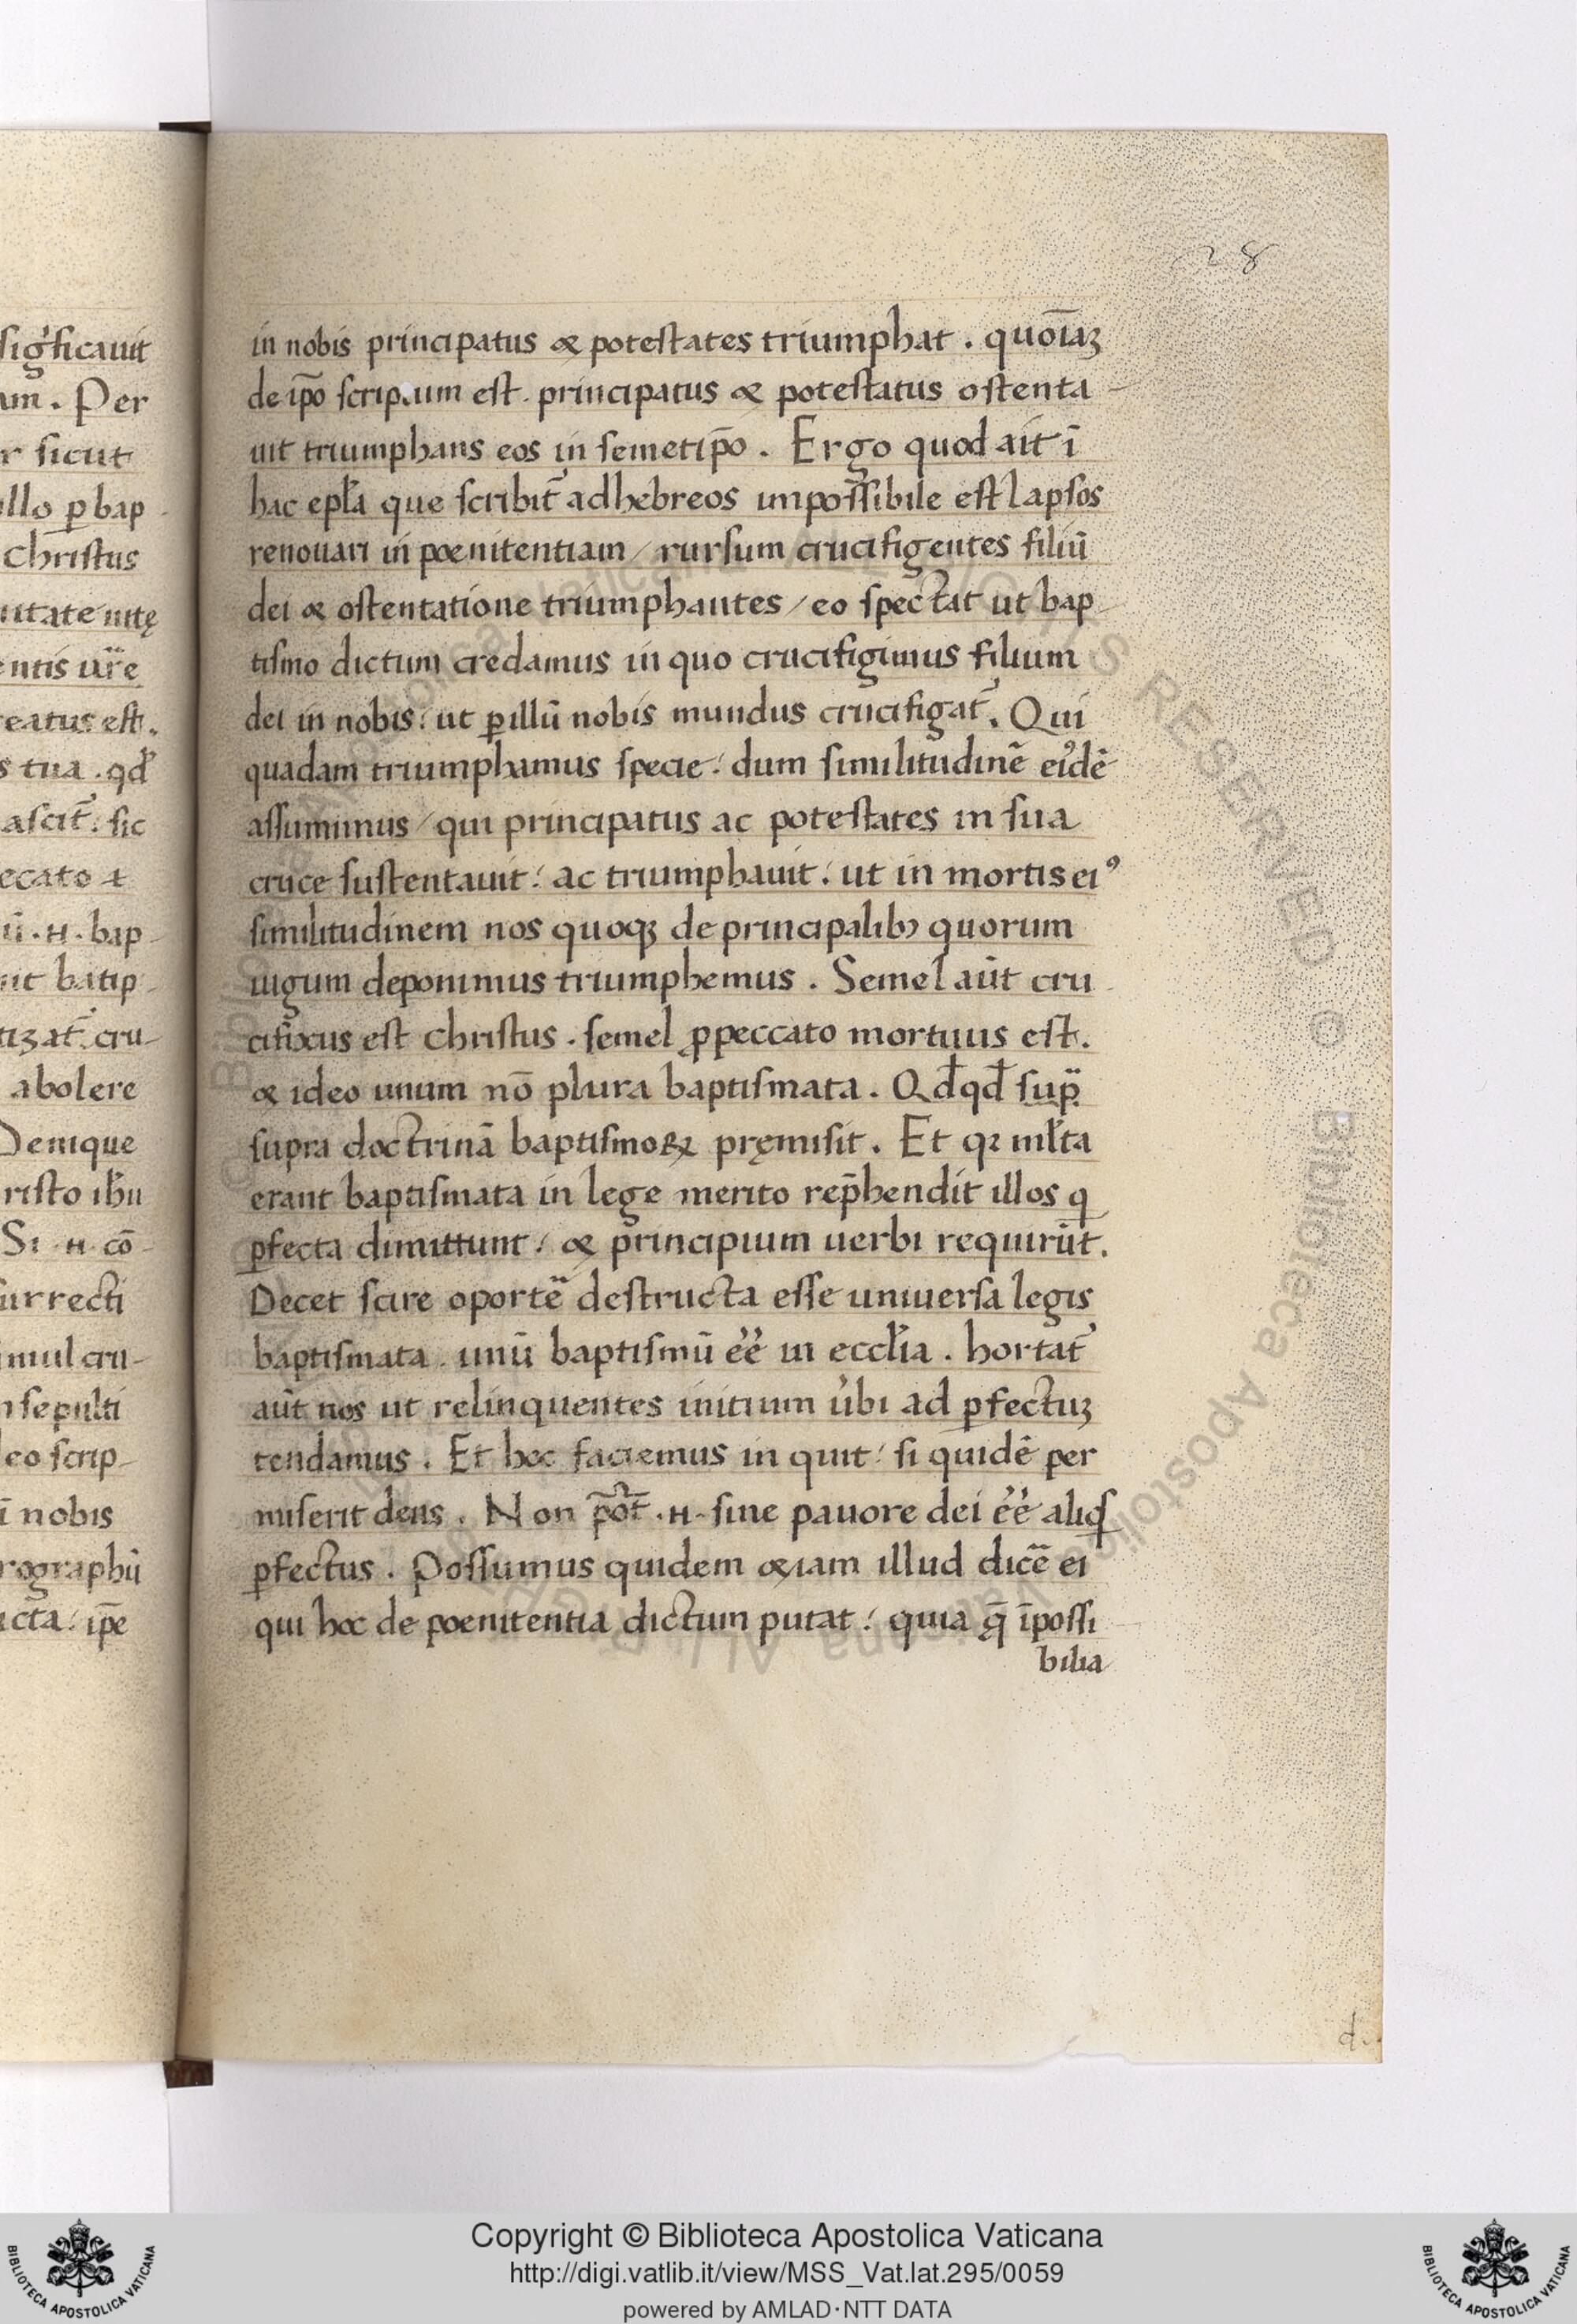 sig̾ficauit
um. Per
r sicut
illo ꝑ bap
Christus
uitate uitę
entis ur̄e
reatus est.
s tua. qđ
ascit᷑: sic
ecato &
ū .H. bap
ut batip
tizat᷑ cru-
abolere
Denique
risto ihu
Si .H. cō
surrecti
imul cru-
nsepulti
eo scrip-
ī nobis
rographū
icta: ip̄e
28
in nobis principatus & potestates triumphat. quoīaꝫ
de ip̄o scrip.um est. principatus & potestatus ostenta-
uit triumphans eos in semetip̄o. Ergo quod ait ī
hac epła que scribit᷑ ad hebreos impossibile est lapsos
renouari in poenitentiam / rursum crucifigentes filiū
dei & ostentatione triumphantes / eo spectat ut bap-
tismo dictum credamus in quo crucifigimus filium
dei in nobis: ut ꝑ illū nobis mundus crucifigat᷑. Qui
quadam triumphamus specie: dum similitudinē eídē
assumimus / qui principatus ac potestates in sua
cruce sustentauit: ac triumphauit: ut in mortis eiꝰ
similitudinem nos quoqꝫ de principalibꝫ quorum
iugum deponimus triumphemus. Semel aūt cru-
cifixus est christus. semel ꝓ peccato mortuus est.
& ideo unum nō plura baptismata. Qđqđ sup̄
supra doctrinā baptismoꝝ pręmisit. Et qꝛ mlta
erant baptismata in lege merito rep̄hendit illos q
ꝑfecta dimittunt: & principium uerbi requirūt.
Decet scire oportē destructa esse uniuersa legis
baptismata. unū baptismū éé in ecclia. hortat᷑
aūt nos ut relinquentes initium úbi ad ꝑfectuꝫ
tendamus. Et hec faciemus in quit: si quidē per
miserit deus. Non p̄ot̄ .H. sine pauore dei éé aliqs
ꝑfectus. Possumus quidem &iam illud dicē ei
qui hoc de poenitentia dictum putat: quia q̄ īpossi
bilia
d.
Copyright © Biblioteca Apostolica Vaticana
http://digi.vatlib.it/view/MSS_Vat.lat.295/0059
powered by AMLAD·NTT DATA
BIBLIOTECA APOSTOLICA VATICANA
BIBLIOTECA APOSTOLICA VATICANA